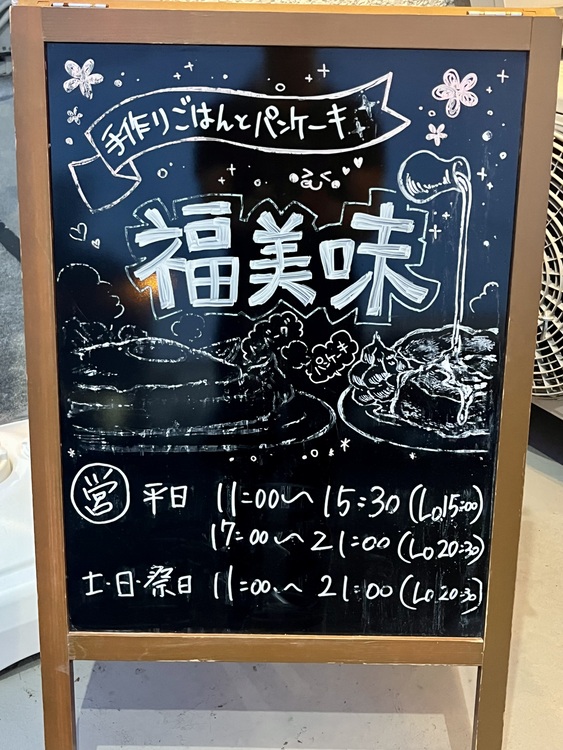 手作りごはんとパンケーキ
福美味
パンケーキ
営 平日 11:00〜15:30 (Lo.15:00)
17:00〜21:00 (Lo.20:30)
土・日・祭日 11:00〜21:00 (Lo.20:30)